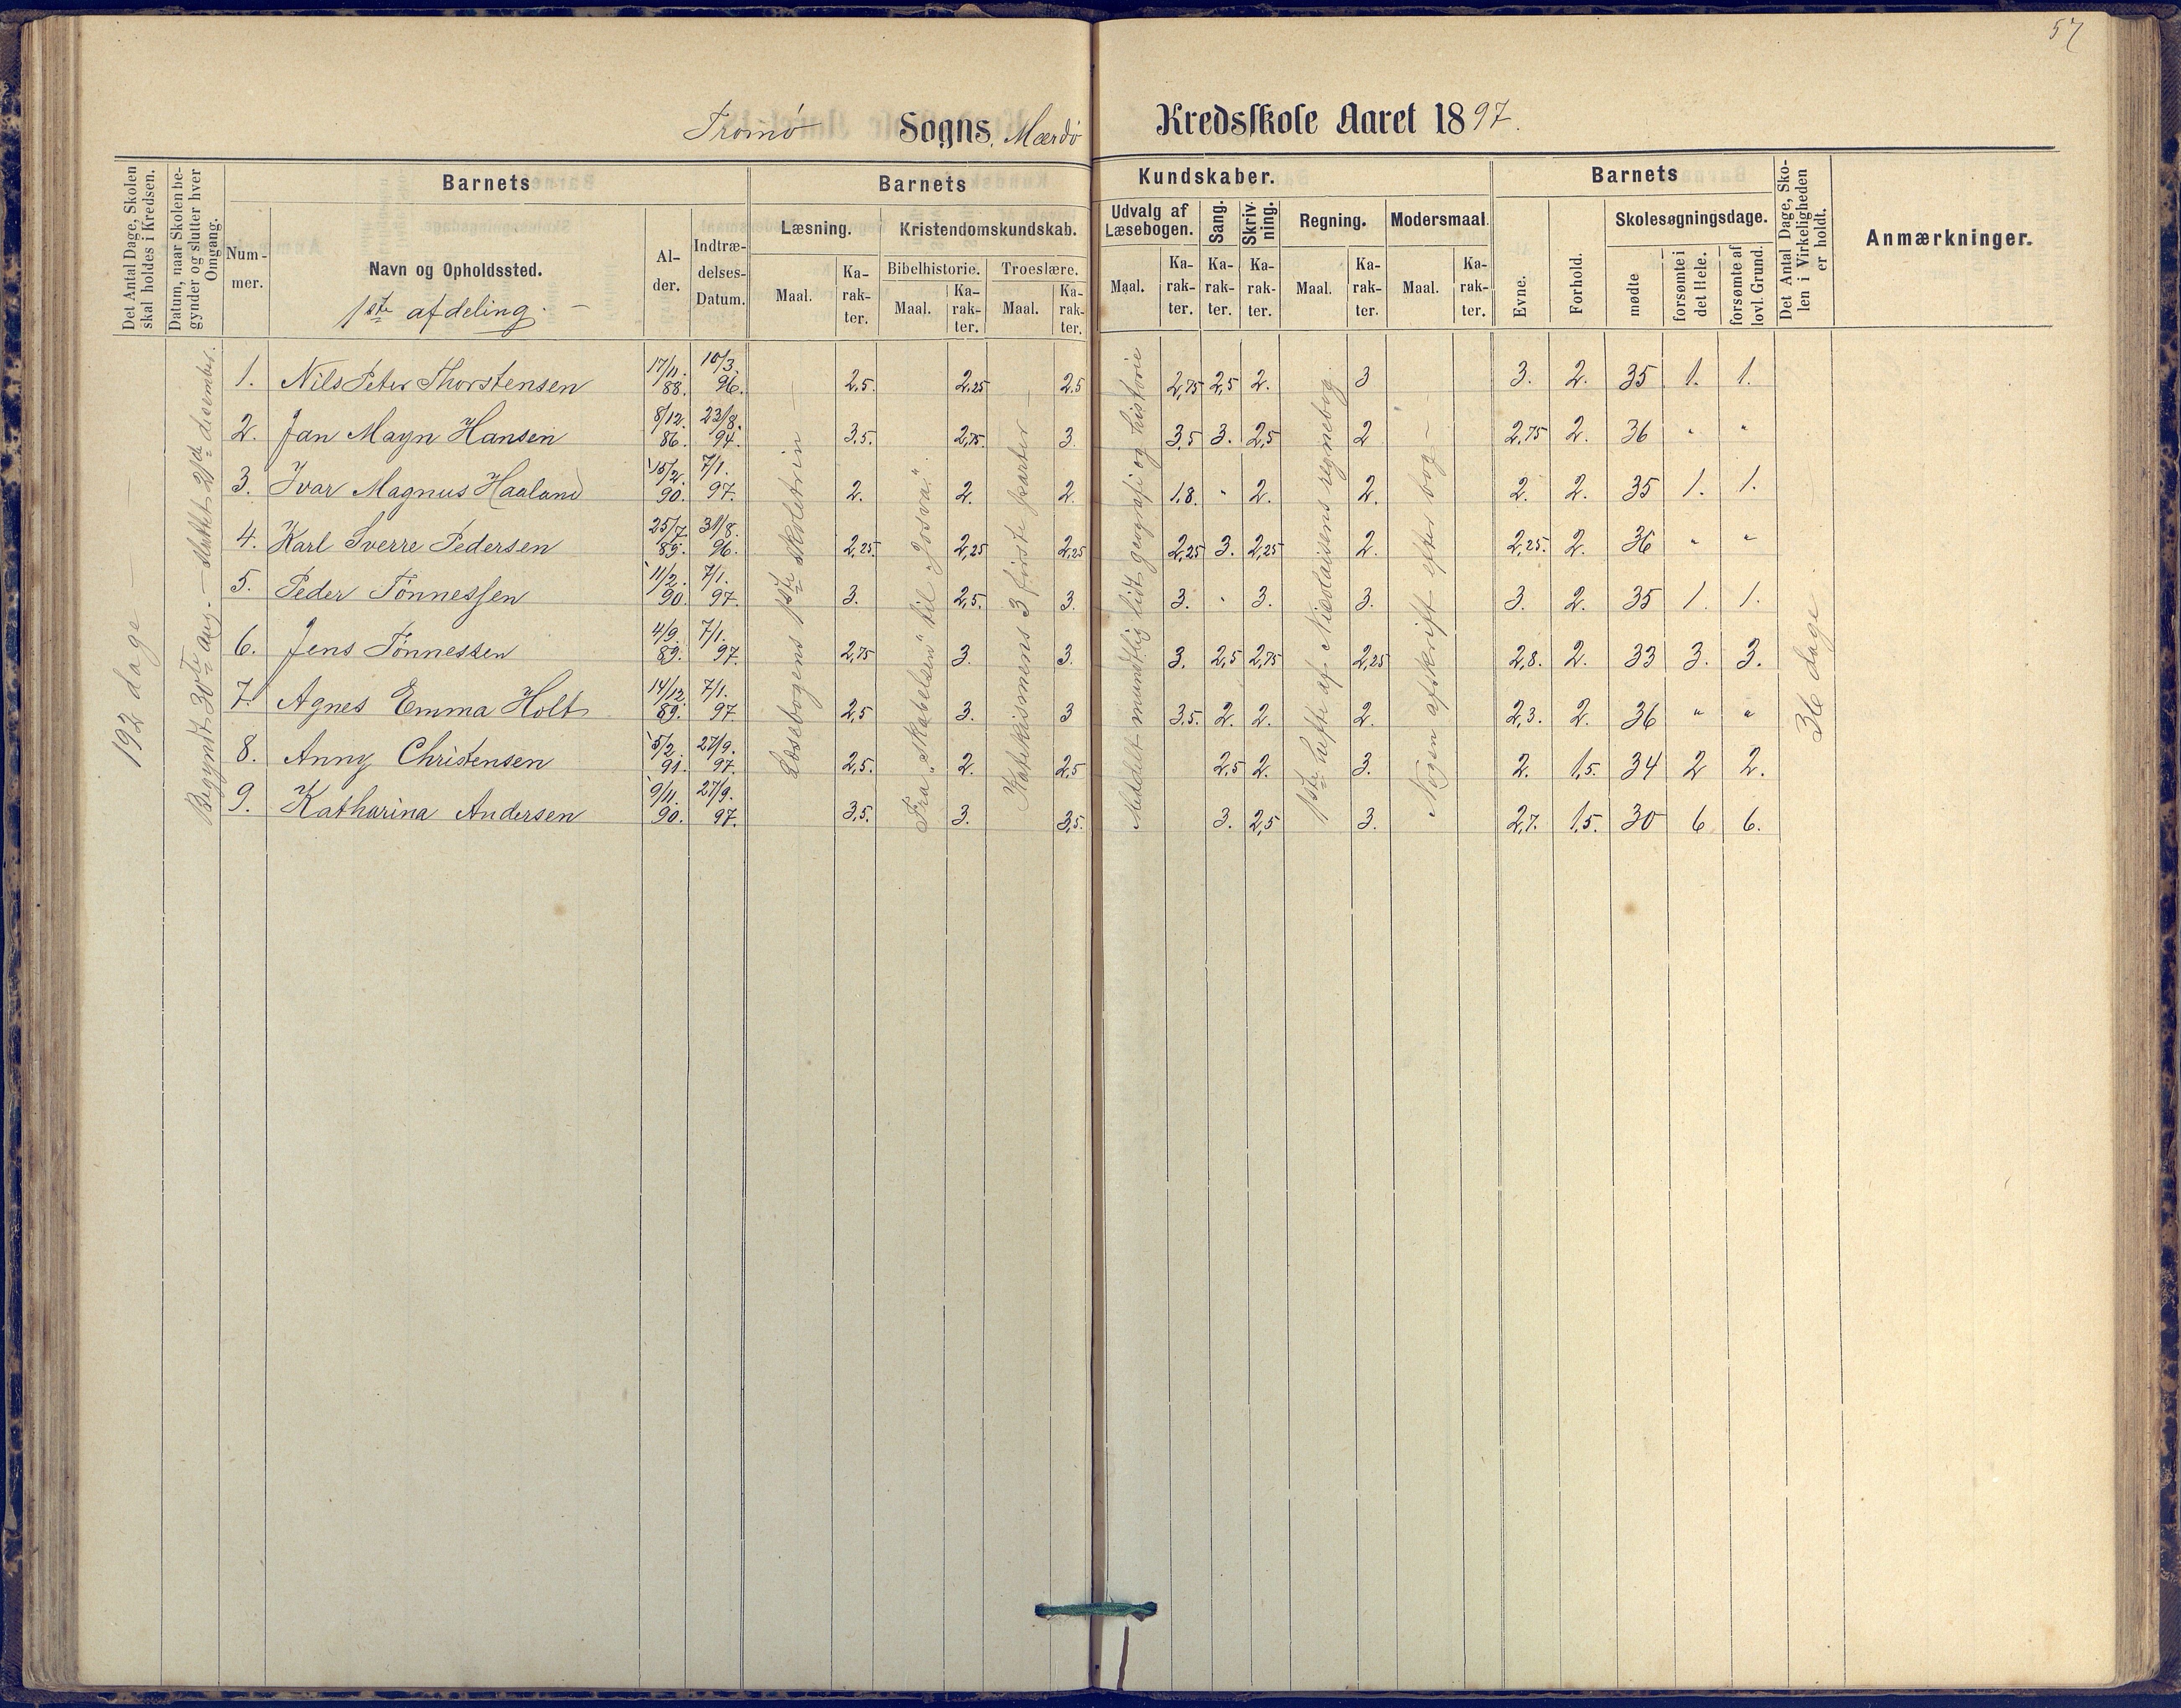 57
Tromø Sogns. Mærdø Kredsskole Aaret 1897.
Det Antal Dage, Skolen skal holdes i Kredsen.
Datum, naar Skolen begynder og slutter hver Omgang.
Barnets
Nummer.
Navn og Opholdssted.
1ste afdeling.
Alder.
Indtrædelses-Datum.
Barnets Kundskaber.
Læsning.
Maal. Karakter.
Kristendomskundskab.
Bibelhistorie. Troeslære.
Maal. Karakter. Maal. Karakter.
Udvalg af Læsebogen.
Maal. Karakter.
Sang. Karakter.
Skrivning. Karakter.
Regning.
Maal. Karakter.
Modersmaal.
Maal. Karakter.
Barnets
Evne.
Forhold.
Skolesøgningsdage.
mødte
forsømte i det Hele.
forsømte af lovl. Grund.
Det Antal Dage, Skolen i Virkeligheden er holdt.
Anmærkninger.
192 dage
Begyndt 30te aug. — sluttet 21de desember.
Læsebogens 1ste skoletrin —
Fra „Skabelsen" til „Josva".
Katekismens 3 første parter —
Meddelt mundtlig lidt geografi og historie
1ste hefte af Nicolaisens regnebog.
Nogen afskrift efter bog —
36 dage
1. Nils Peter Thorstensen 17/11. 88. 10/3. 96. 2,5. 2,25 2,5 2,75 2,5 2. 3 3. 2. 35 1. 1.
2. Jan Mayn Hansen 8/12. 86. 23/8. 94. 3,5. 2,75. 3. 3,5 3. 2,5 2 2,75 2. 36 " "
3. Ivar Magnus Haaland 15/2. 90. 7/1. 97. 2. 2. 2. 1,8. " 2. 2. 2. 2. 35 1. 1.
4. Karl Sverre Pedersen 25/7. 89. 31/8. 96. 2,25. 2,25 2,25 2,25 3. 2,25 2. 2,25. 2. 36 " "
5. Peder Tønnessen 11/2. 90. 7/1. 97. 3. 2,5. 3. 3. " 3. 3. 3. 2. 35 1. 1.
6. Jens Tønnessen 4/9. 89. 7/1. 97. 2,75 3. 3. 3. 2,5 2,75 2,25 2,8. 2. 33 3. 3.
7. Agnes Emma Holt 14/12. 89. 7/1. 97. 2,5 3. 3 3,5. 2. 2. 2. 2,3. 2. 36 " "
8. Anny Christensen 5/2. 91. 27/9. 97. 2,5. 2. 2,5 2,5 2. 3. 2. 1,5. 34 2 2.
9. Katharina Andersen 9/11. 90. 27/9. 97. 3,5. 3. 3,5. 3. 2,5 3. 2,7. 1,5. 30 6 6.